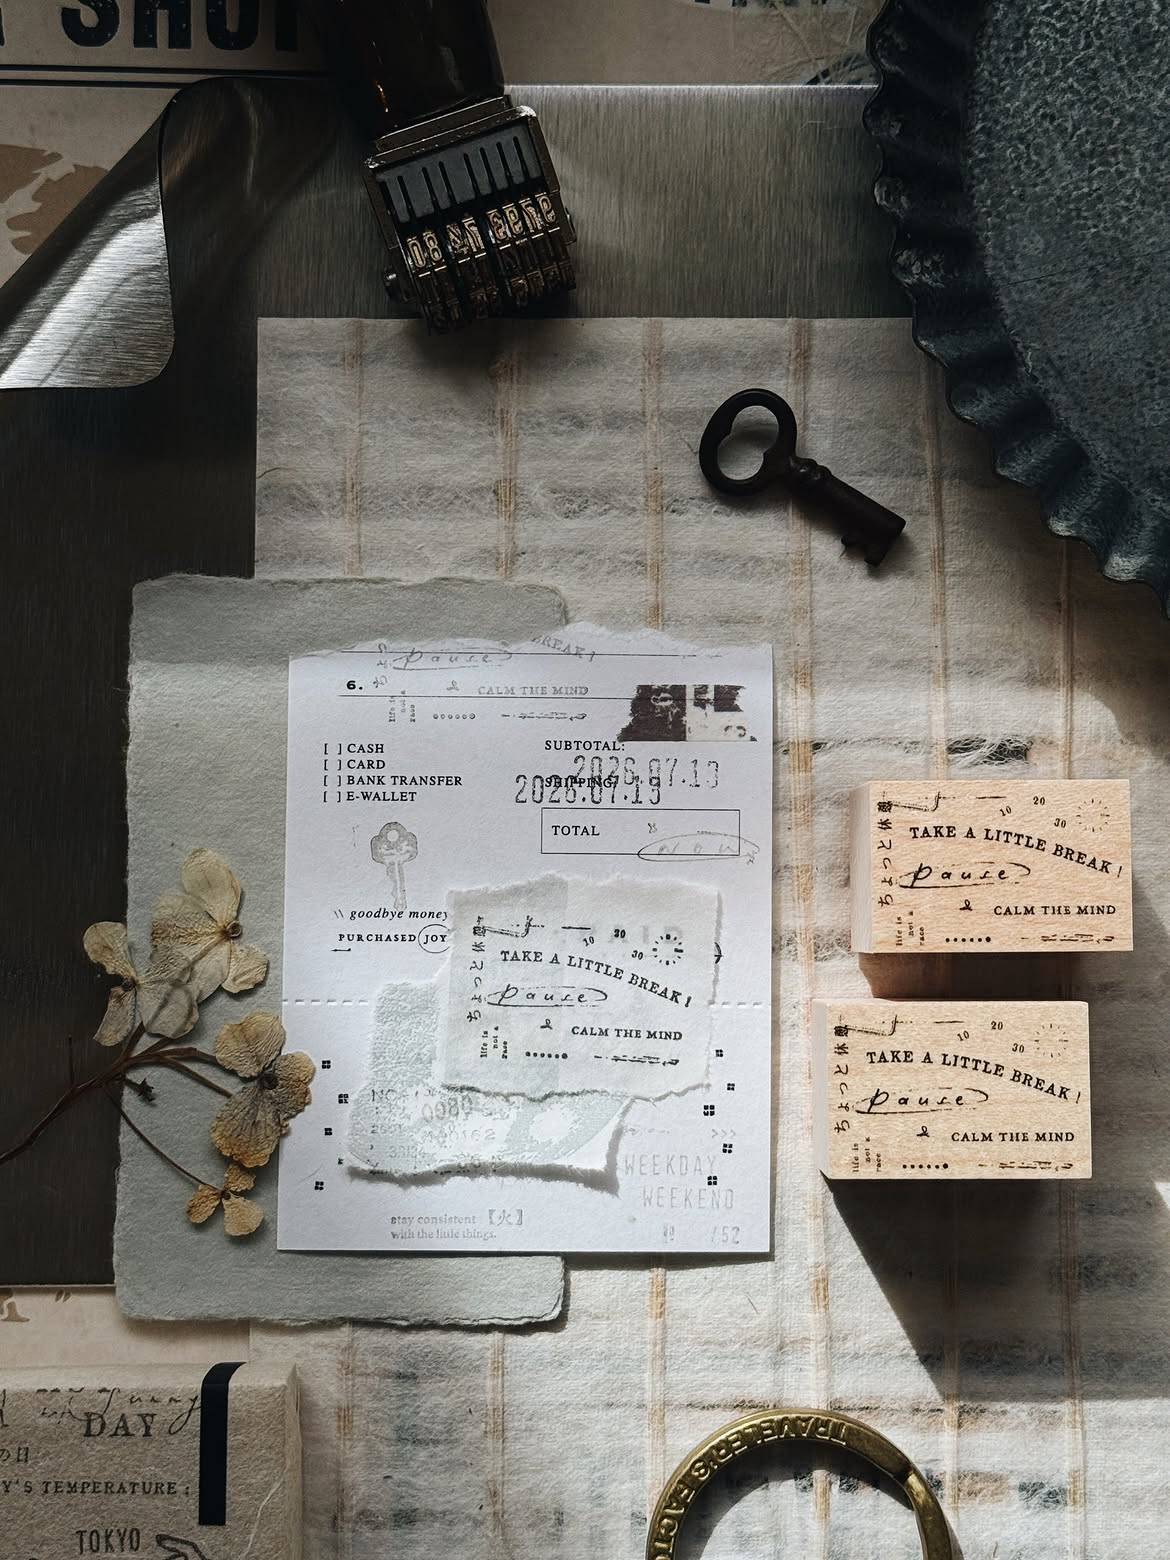 SHOP
BREAK!
pause
6.
CALM THE MIND
life is
not a
race
[ ] CASH
[ ] CARD
[ ] BANK TRANSFER
[ ] E-WALLET
SUBTOTAL:
2026.07.13
SHIPPING:
2026.07.13
TOTAL
now
\\ goodbye money
PURCHASED JOY
ちょっと休憩
10
20
30
TAKE A LITTLE BREAK!
pause
CALM THE MIND
life is
not a
race
NO
0080
>>>
WEEKDAY
WEEKEND
/52
stay consistent 【火】
with the little things.
ちょっと休憩
10
20
30
TAKE A LITTLE BREAK!
pause
CALM THE MIND
life is
not a
race
ちょっと休憩
10
20
30
TAKE A LITTLE BREAK!
pause
CALM THE MIND
life is
not a
race
DAY
の日
Y'S TEMPERATURE:
TOKYO
TRAVELER'S FACTO